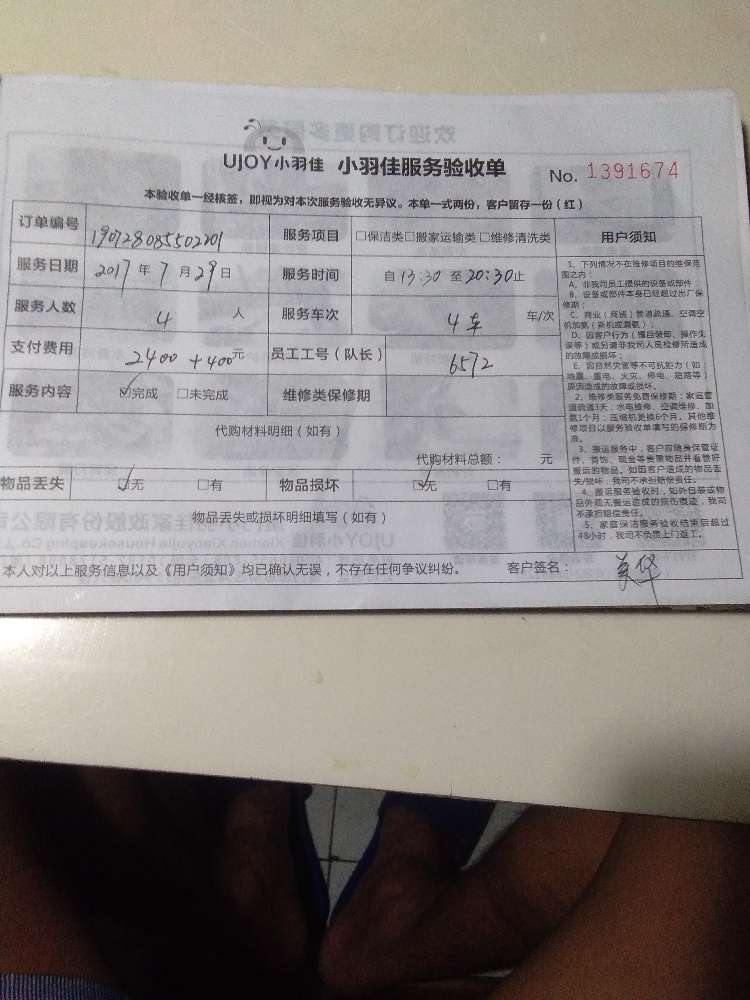 UJOY小羽佳 小羽佳服务验收单 No. 1391674
本验收单一经核签，即视为对本次服务验收无异议。本单一式两份，客户留存一份（红）
订单编号 190728085502201 服务项目 □保洁类□搬家运输类□维修清洗类
服务日期 2017年7月29日 服务时间 自13:30至20:30止
服务人数 4 人 服务车次 4车 车/次
支付费用 2400+400元 员工工号（队长） 6572
服务内容 ☑完成 □未完成 维修类保修期
代购材料明细（如有）
代购材料总额： 元
物品丢失 ☑无 □有 物品损坏 ☑无 □有
物品丢失或损坏明细填写（如有）
本人对以上服务信息以及《用户须知》均已确认无误，不存在任何争议纠纷。 客户签名：
用户须知
1、下列情况不在维修项目的维保范
围之内：
A、非我司员工提供的设备或部件；
B、设备或部件本身已经超过出厂保
修期；
C、商业（商场）管道疏通、空调空
机加氨（新机或漏氨）；
D、因客户行为（擅自装卸、操作失
误等）或另请非我司人员检修所造成
的故障或损坏；
E、因自然灾害等不可抗拒力（如
地震、雷电、火灾、停电、短路等）
原因造成的故障或损坏。
2、维修类服务免费保修期：家庭管
道疏通3天，水电维修、空调维修、加
氨1个月；压缩机更换6个月。其他维
修项目以服务验收单填写的保修期为
准。
3、搬运服务中，客户应随身保管证
件、首饰、现金等贵重物品并看管好
搬运的物品。如因客户造成的物品丢
失/损坏，我司不承担赔偿责任。
4、搬运服务验收时，如外包装或物
品外观无搬运造成的损伤痕迹，我司
不承担赔偿责任。
5、家庭保洁服务验收结束后超过
48小时，我司不负责上门返工。